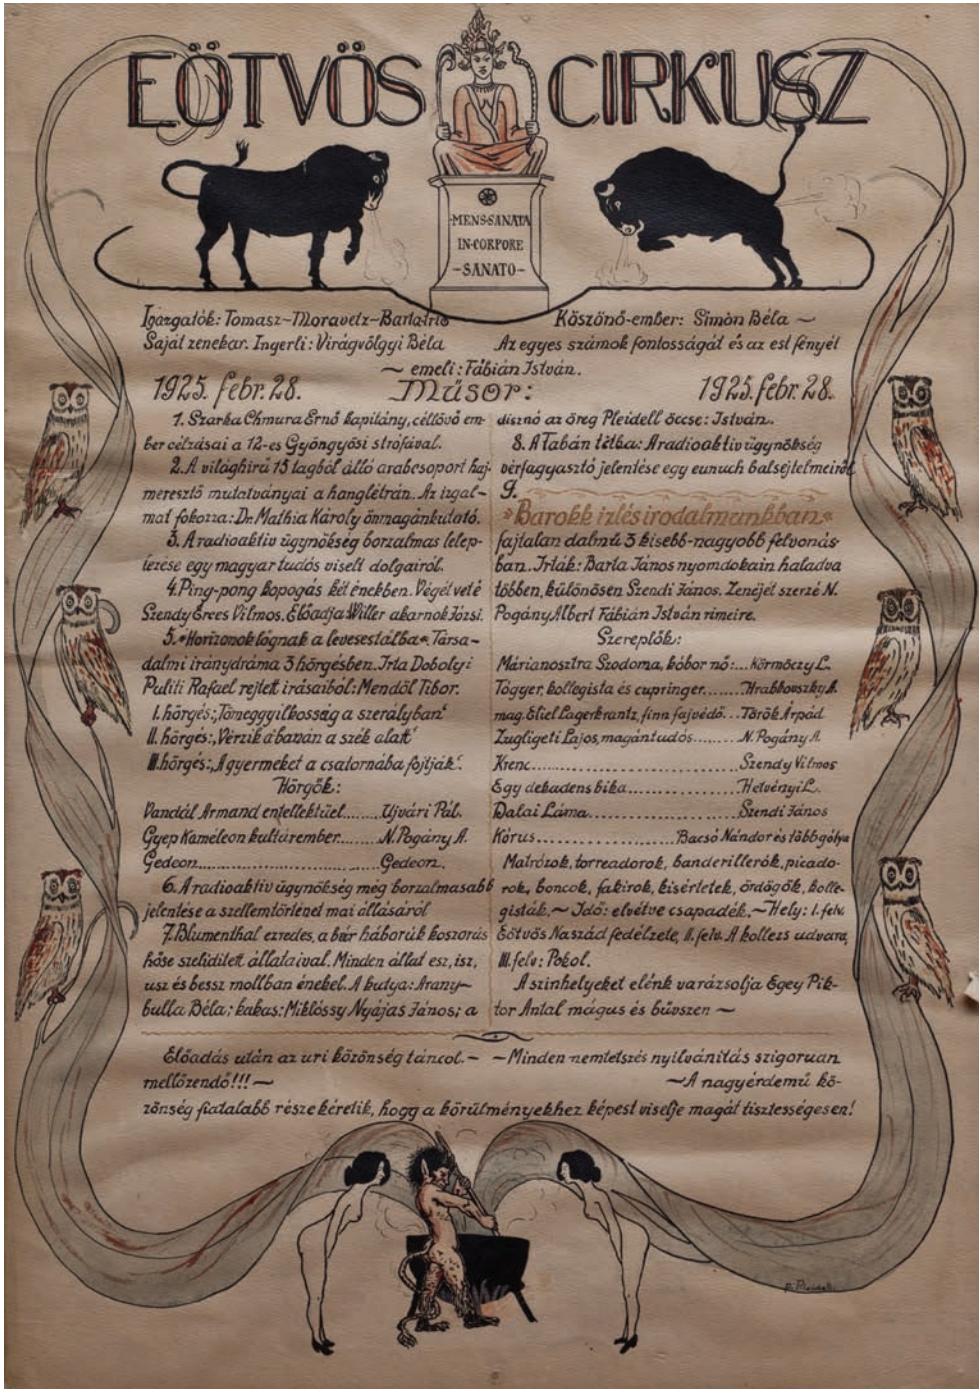 EÖTVÖS CIRKUSZ
MENS·SANATA
IN·CORPORE
–SANATO–
Igazgatók: Tomasz–Moravetz–Barta-trió
Köszönő-ember: Simon Béla ~
Saját zenekar. Ingerli: Virágvölgyi Béla
Az egyes számok fontosságát és az est fényét
~ emeli: Fábián István.
1925. febr. 28.
Műsor:
1925. febr. 28.
1. Szarka Chmura Ernő kapitány, céllövő em-
ber célzásai a 12-es Gyöngyösi strófával.
2. A világhírű 15 tagból álló arabcsoport haj-
meresztő mutatványai a hanglétrán. Az izgal-
mat fokozza: Dr. Mathia Károly önmagánkutató.
3. A radioaktiv ügynökség borzalmas lelep-
lezése egy magyar tudós viselt dolgairól.
4. Ping-pong kopogás két énekben. Végét veté
Szendy Eres Vilmos. Előadja: Willer akarnok Józsi.
5. "Horizonok lógnak a levesestálba". Társa-
dalmi iránydráma 3 hörgésben. Irta Dobolyi
Puliti Rafael rejtett irásaiból: Mendöl Tibor.
I. hörgés: „Tömeggyilkosság a szerályban"
II. hörgés: „Vérzik a banán a szék alatt"
III. hörgés: „A gyermeket a csatornába fojtják".
Hörgők:
Vandál Armand entellektüel......Ujvári Pál.
Gyep Kaméleon kultúrember.......N. Pogány A.
Gedeon.......................Gedeon.
6. A radioaktiv ügynökség még borzalmasabb
jelentése a szellemtörténet mai állásáról
7. Blumenthal ezredes, a búr háborúk koszorús
hőse szeliditett állataival. Minden állat esz, isz,
usz és bessz mollban énekel. A kutya: Arany-
bulla Béla; kakas: Miklóssy Nyájas János; a
disznó az öreg Pleidell öccse: István.
8. A Tabán titka: A radioaktiv ügynökség
vérfagyasztó jelentése egy eunuch balsejtelmeiről
9.
"Barokk izlés irodalmunkban"
fajtalan dalmű 3 kisebb-nagyobb felvonás-
ban. Irták: Barta János nyomdokain haladva
többen, különösen Szendi János. Zenéjét szerzé N.
Pogány Albert Fábián István rimeire.
Szereplők:
Márianosztra Szodoma, kóbor nő:...Körmöczy L.
Tőgyer, kollegista és cupringer.......Hrabkovszky A.
mag. Eliel Lagerkrantz, finn fajvédő...Török Árpád
Zugligeti Lajos, magántudós.......N. Pogány A.
Krenc.......................Szendy Vilmos
Egy dekadens bika................Hetvényi L.
Dalai Láma.....................Szendi János
Kórus...................Bacsó Nándor és több gólya
Matrózok, torreadorok, banderillerók, picado-
rok, boncok, fakirok, kisértetek, ördögök, kolle-
gisták. ~ Idő: elvétve csapadék. ~ Hely: I. felv.
Eötvös Naszád fedélzete, II. felv. A kollegs udvara,
III. felv: Pokol.
A szinhelyeket elénk varázsolja Egey Pik-
tor Antal mágus és bűvszen ~
Előadás után az uri közönség táncol. ~ ~ Minden nemtetszés nyilvánitás szigoruan
mellőzendő!!! ~
~ A nagyérdemű kö-
zönség fiatalabb része kéretik, hogy a körülményekhez képest viselje magát tisztességesen!